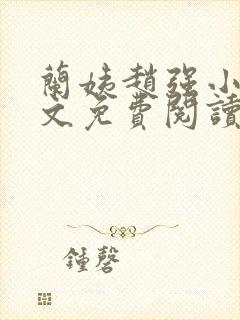 蘭姨趙強小
文免費閱讀
鍾磬